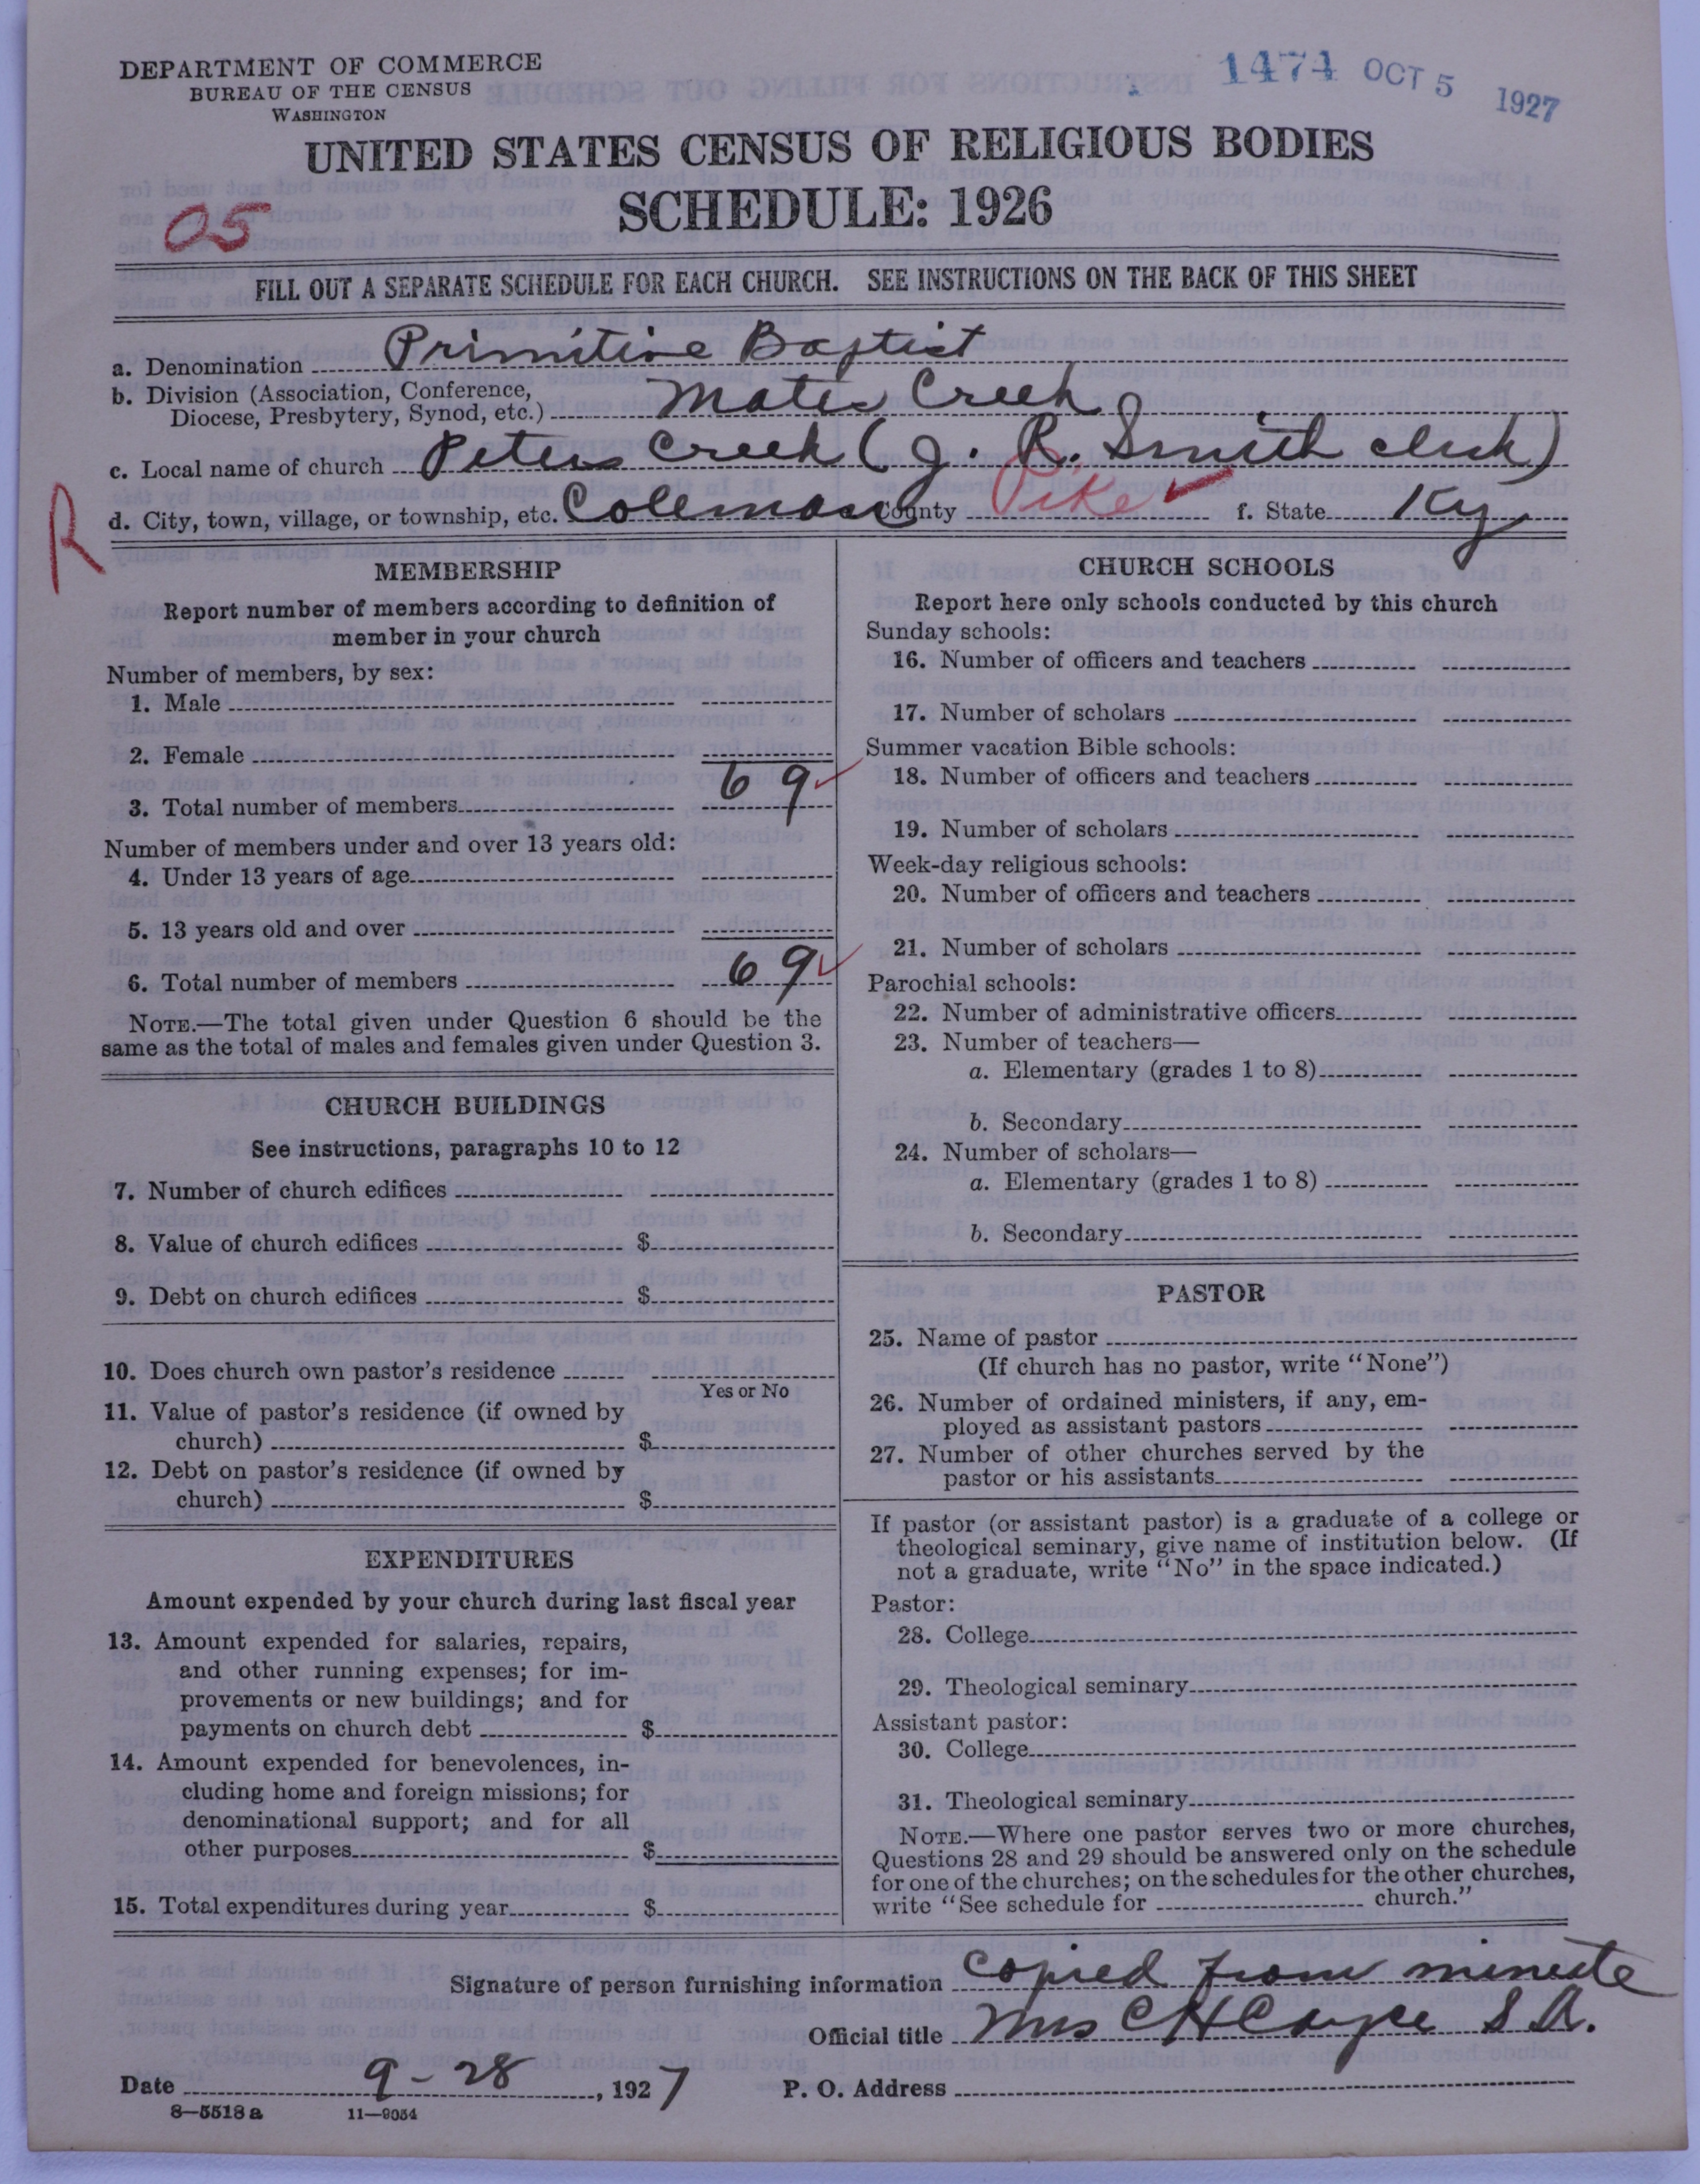 DEPARTMENT OF COMMERCE
BUREAU OF THE CENSUS
WASHINGTON
1474 OCT 5 1927
UNITED STATES CENSUS OF RELIGIOUS BODIES
SCHEDULE: 1926
05
FILL OUT A SEPARATE SCHEDULE FOR EACH CHURCH. SEE INSTRUCTIONS ON THE BACK OF THIS SHEET
a. Denomination Primitive Baptist
b. Division (Association, Conference,
Diocese, Presbytery, Synod, etc.) Mates Creek
c. Local name of church Peters Creek (J. R. Smith clerk)
R
d. City, town, village, or township, etc. Coleman County Pike f. State Ky
MEMBERSHIP
Report number of members according to definition of
member in your church
Number of members, by sex:
1. Male
2. Female
3. Total number of members 69
Number of members under and over 13 years old:
4. Under 13 years of age
5. 13 years old and over
6. Total number of members 69
NOTE.—The total given under Question 6 should be the
same as the total of males and females given under Question 3.
CHURCH BUILDINGS
See instructions, paragraphs 10 to 12
7. Number of church edifices
8. Value of church edifices $
9. Debt on church edifices $
10. Does church own pastor's residence
Yes or No
11. Value of pastor's residence (if owned by
church) $
12. Debt on pastor's residence (if owned by
church) $
EXPENDITURES
Amount expended by your church during last fiscal year
13. Amount expended for salaries, repairs,
and other running expenses; for im-
provements or new buildings; and for
payments on church debt $
14. Amount expended for benevolences, in-
cluding home and foreign missions; for
denominational support; and for all
other purposes $
15. Total expenditures during year $
CHURCH SCHOOLS
Report here only schools conducted by this church
Sunday schools:
16. Number of officers and teachers
17. Number of scholars
Summer vacation Bible schools:
18. Number of officers and teachers
19. Number of scholars
Week-day religious schools:
20. Number of officers and teachers
21. Number of scholars
Parochial schools:
22. Number of administrative officers
23. Number of teachers—
a. Elementary (grades 1 to 8)
b. Secondary
24. Number of scholars—
a. Elementary (grades 1 to 8)
b. Secondary
PASTOR
25. Name of pastor
(If church has no pastor, write "None")
26. Number of ordained ministers, if any, em-
ployed as assistant pastors
27. Number of other churches served by the
pastor or his assistants
If pastor (or assistant pastor) is a graduate of a college or
theological seminary, give name of institution below. (If
not a graduate, write "No" in the space indicated.)
Pastor:
28. College
29. Theological seminary
Assistant pastor:
30. College
31. Theological seminary
NOTE.—Where one pastor serves two or more churches,
Questions 28 and 29 should be answered only on the schedule
for one of the churches; on the schedules for the other churches,
write "See schedule for church."
Signature of person furnishing information Copied from minute
Official title Mrs C H Cayce S. A.
Date 9-28, 1927 P. O. Address
8—5518 a 11—9054